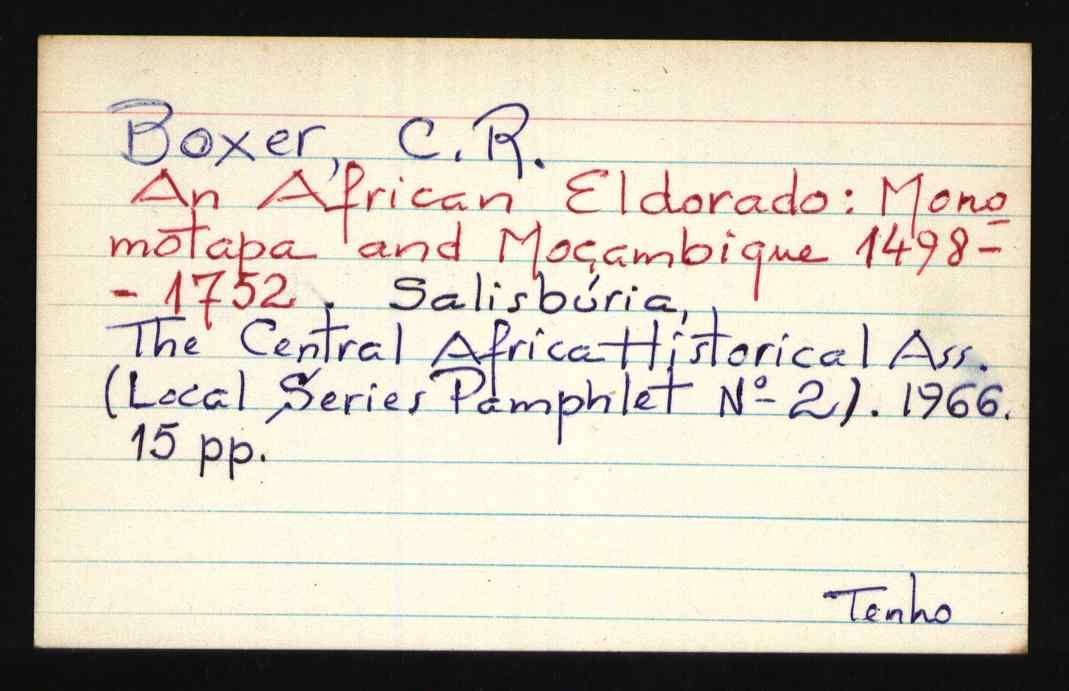 Boxer, C.R.
An African Eldorado: Mono
motapa and Moçambique 1498-
- 1752. Salisbúria,
The Central Africa Historical Ass.
(Local Series Pamphlet Nº 2). 1966.
15 pp.
Tenho